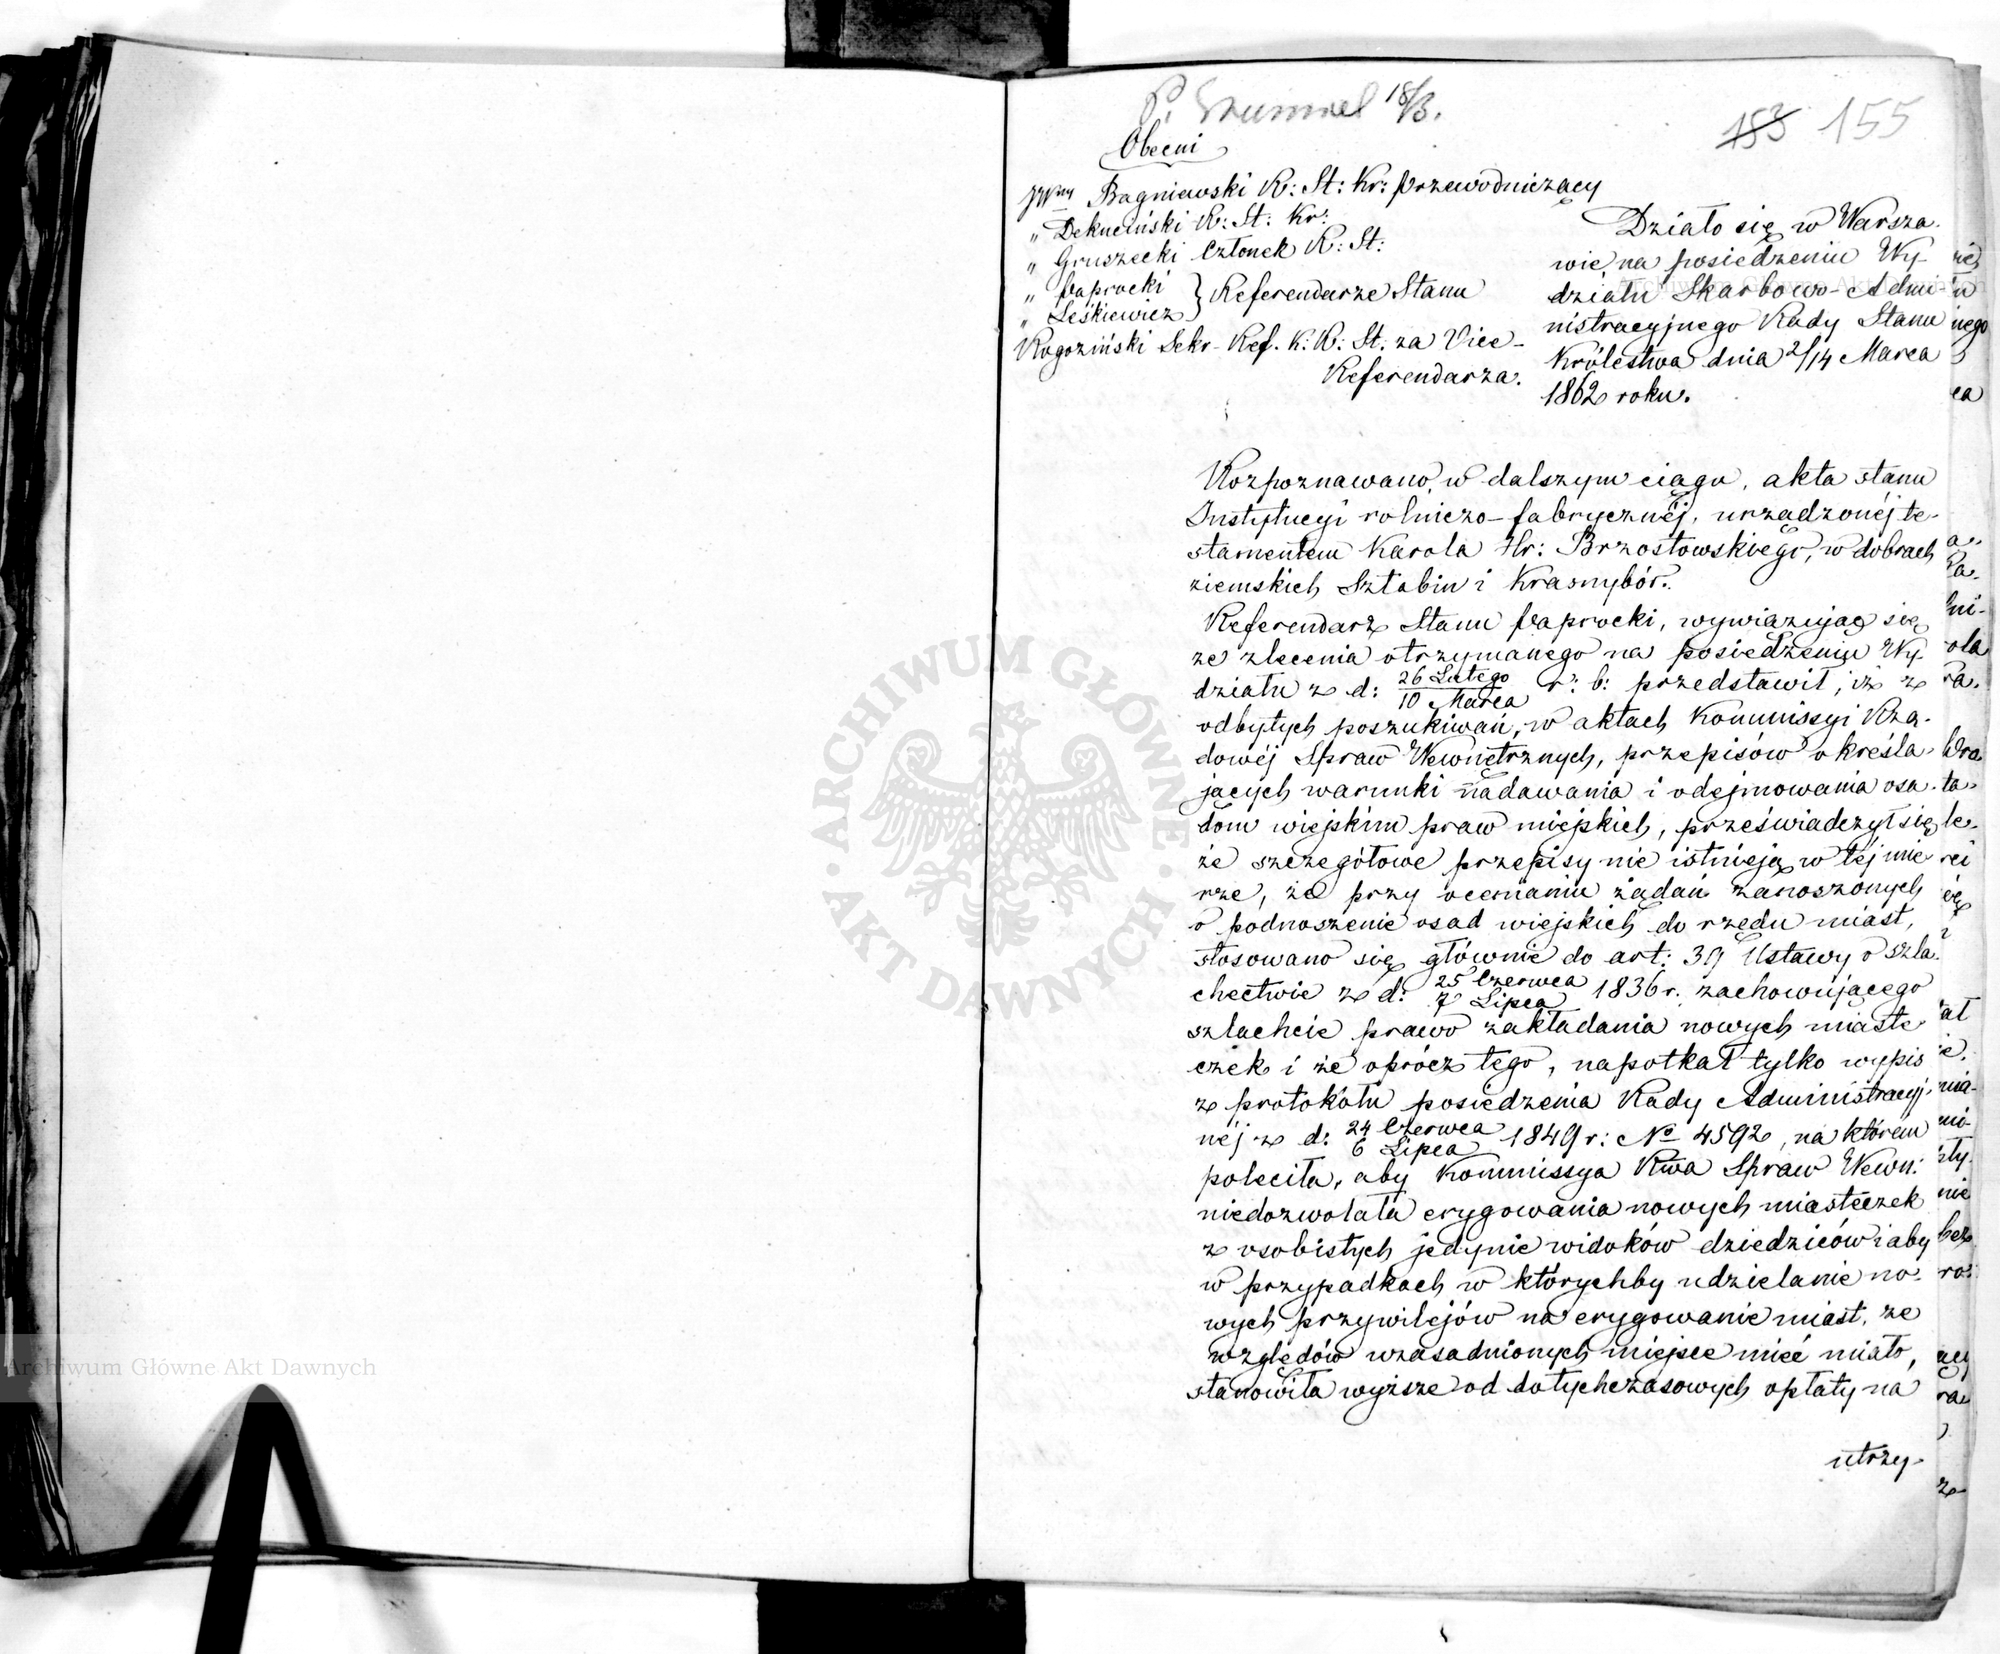 P. Hummel 18/3.
153 155
Obecni
JWny Bagniewski R: St: Kr: Przewodniczący
„ Dekuciński R: St: Kr:
„ Gruszecki Członek R: St:
„ Paprocki
„ Leśkiewicz } Referendarze Stanu
Rogoziński Sekr. Ref. K: R: St: za Vice-
Referendarza.
Działo się w Warsza-
wie, na posiedzeniu Wy-
działu Skarbowo-Admi-
nistracyjnego Rady Stanu
Królestwa dnia 2/14 Marca
1862 roku.
Rozpoznawano, w dalszym ciągu, akta stanu
Instytucyi rolniczo-fabrycznéj, urządzonéj te-
stamentem Karola Hr: Brzostowskiego, w dobrach
ziemskich Sztabin i Krasnybór.
Referendarz Stanu Paprocki, wywiązując się
ze zlecenia otrzymanego na posiedzeniu Wy-
działu z d: 26 Lutego / 10 Marca r: b: przedstawił, iż z
odbytych poszukiwań, w aktach Kommissyi Rzą-
dowéj Spraw Wewnętrznych, przepisów określa-
jących warunki nadawania i odejmowania osa-
dom wiejskim praw miejskich, przeświadczył się
że szczegółowe przepisy nie istnieją w téj mie-
rze, że przy ocenianiu żądań zanoszonych
o podnoszenie osad wiejskich do rzędu miast,
stosowano się głównie do art: 39 Ustawy o szla-
chectwie z d: 25 Czerwca / 7 Lipca 1836 r. zachowującego
szlachcie prawo zakładania nowych miaste-
czek i że oprócz tego, napotkał tylko wypis
z protokółu posiedzenia Rady Administracyj-
néj z d: 24 Czerwca / 6 Lipca 1849 r: No 4592, na którém
poleciła, aby Kommissya Rwa Spraw Wewn:
niedozwolała erygowania nowych miasteczek
z osobistych jedynie widoków dziedziców i aby
w przypadkach w którychby udzielanie no-
wych przywilejów na erygowanie miast, ze
względów uzasadnionych miejsce mieć miało,
stanowiła wyższe od dotychczasowych opłaty na
utrzy-
ARCHIWUM GŁÓWNE AKT DAWNYCH
Archiwum Główne Akt Dawnych